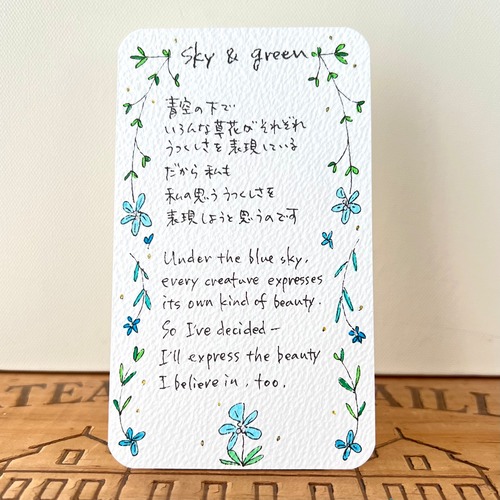 sky & green
青空の下で
いろんな草花がそれぞれ
うつくしさを表現している
だから 私も
私の思ううつくしさを
表現しようと思うのです
Under the blue sky,
every creature expresses
its own kind of beauty.
So I've decided—
I'll express the beauty
I believe in, too.
TEA
AILL